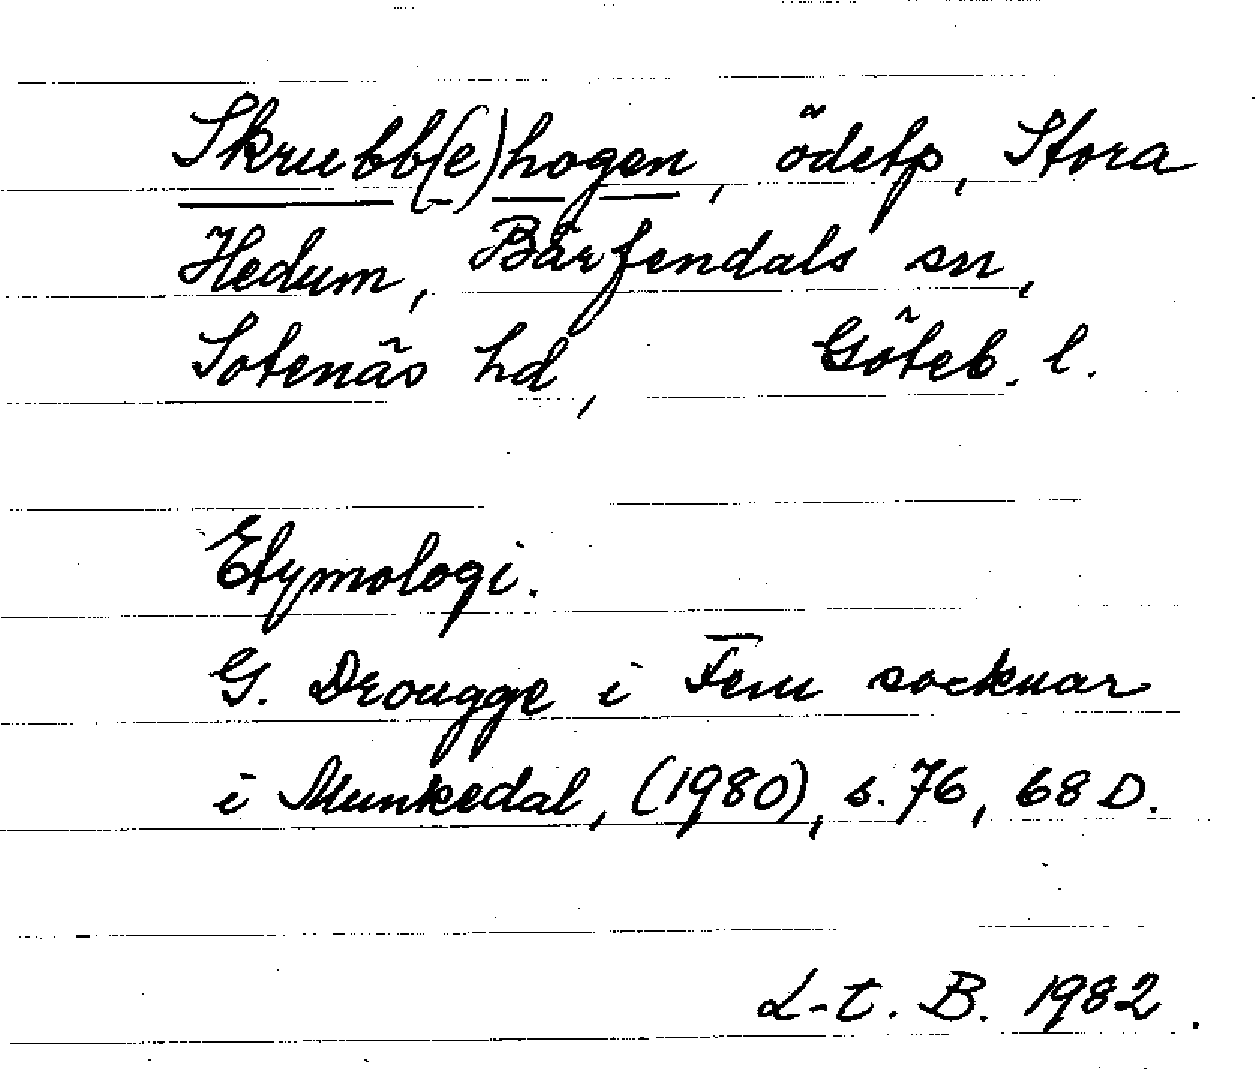 Skrubb(e)hogen, ödetp, Stora
Hedum, Bärfendals sn,
Sotenäs hd, Göteb. l.
Etymologi.
G. Drougge i Fem socknar
i Munkedal, (1980), s. 76, 68 D.
L-t. B. 1982.